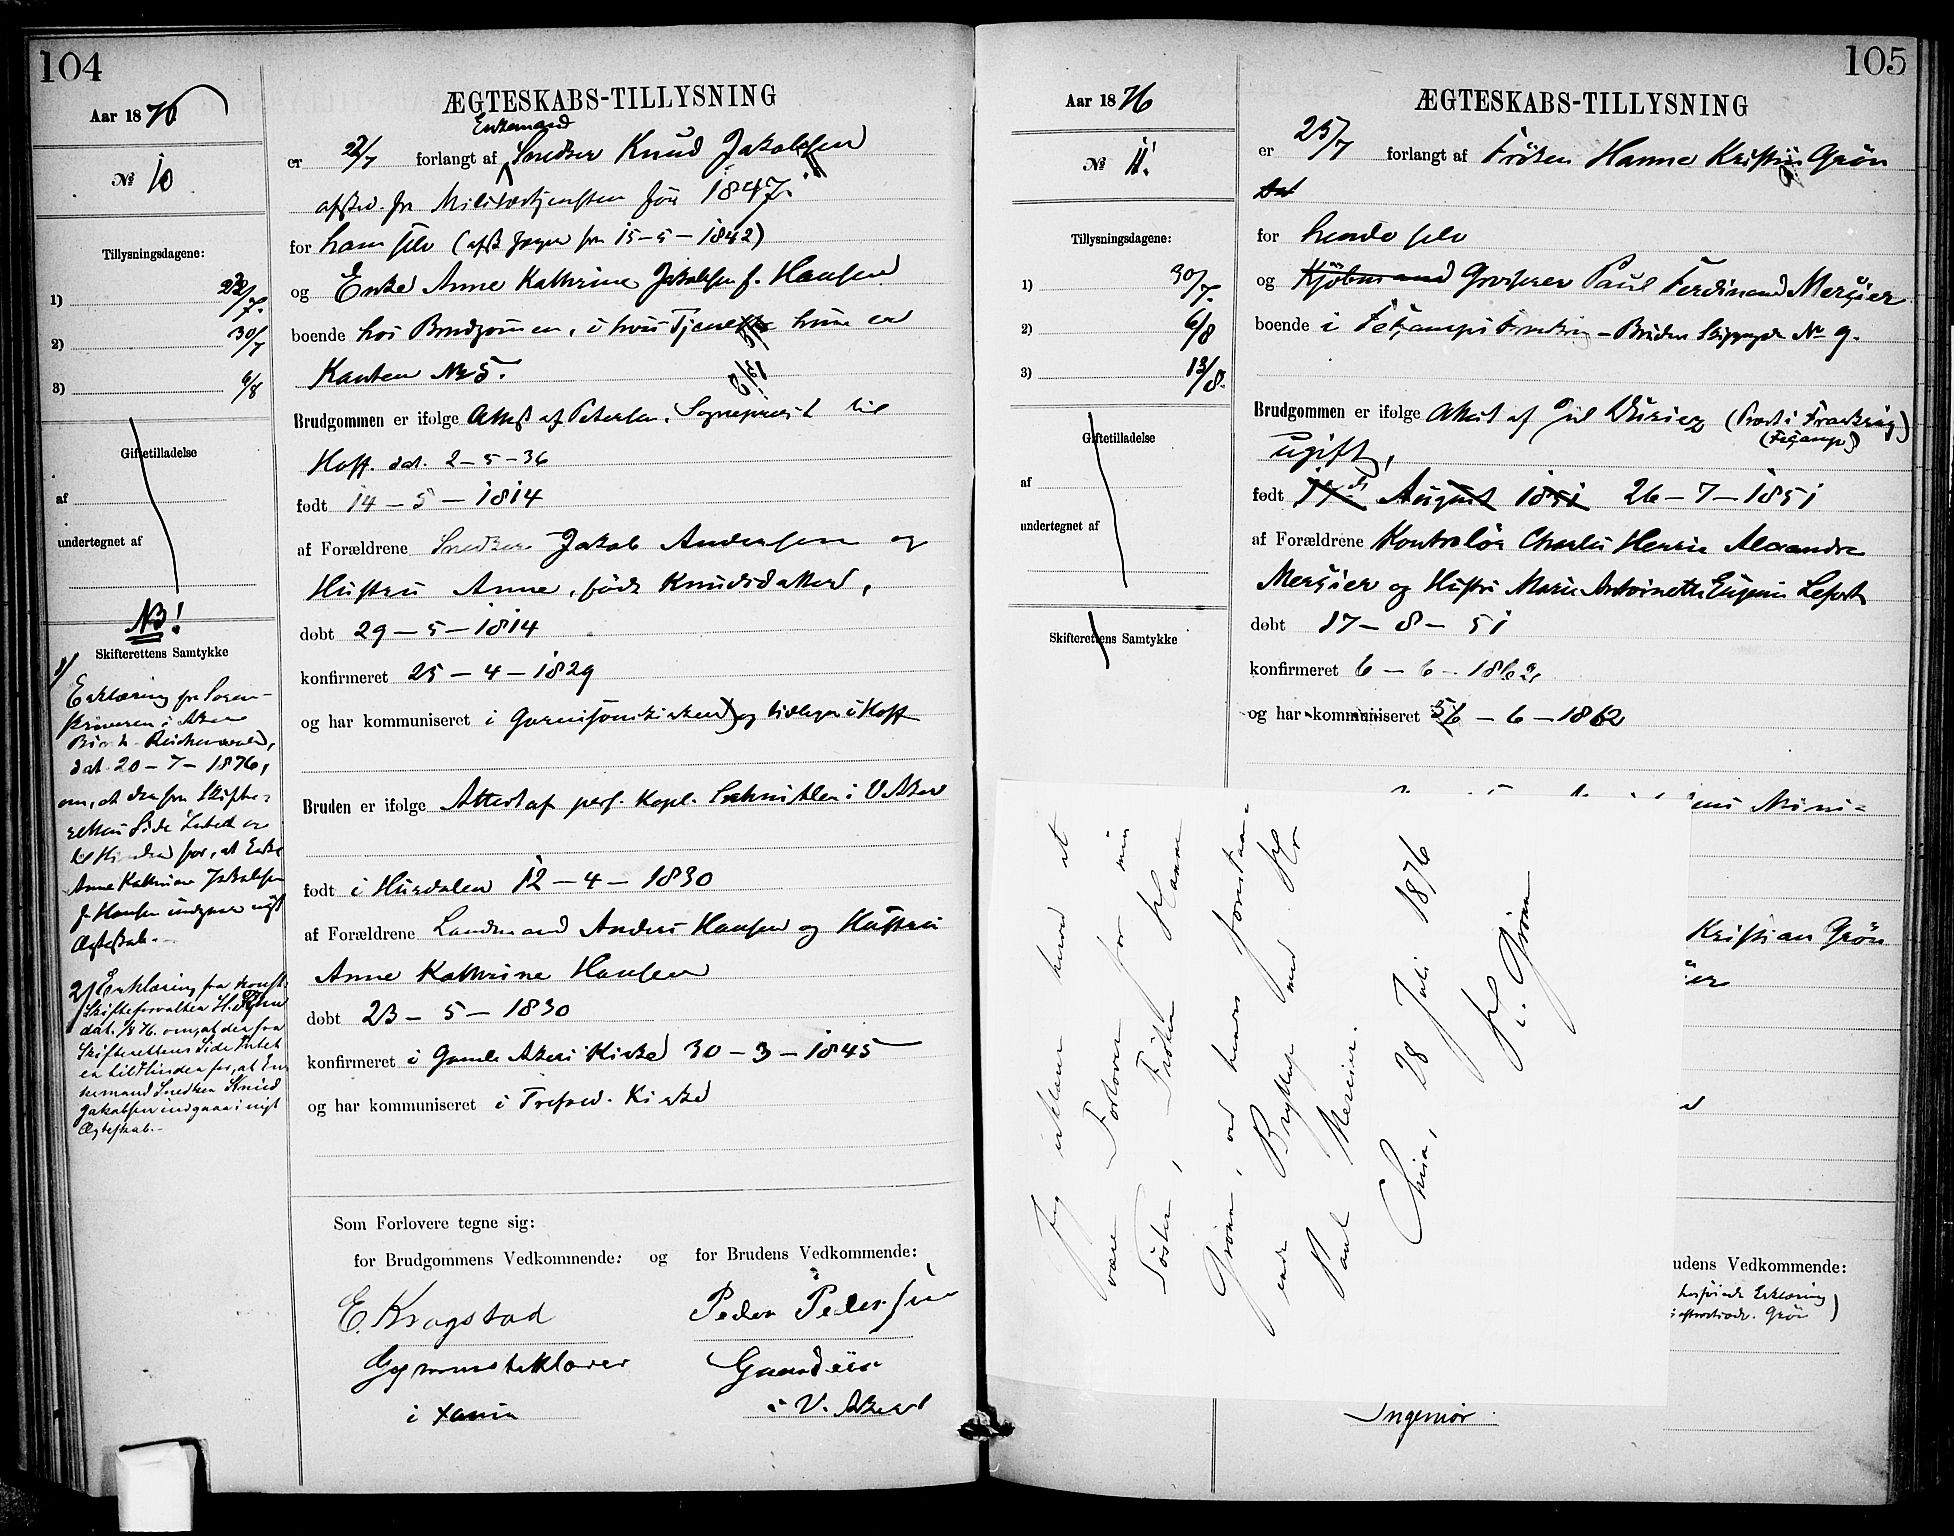 104
Aar 1876
ÆGTESKABS-TILLYSNING
№ 10
Enkemand
er 22/7 forlangt af Snedker Knud Jakobsen
afsked. fra Militærtjenesten før 1847.
for ham selv (afsk Jæger fra 15-5-1842)
og Enke Anne Kathrine Jakobsen f. Hansen
boende hos Brudgommen, i hvis Tjeneste hun er
Kanten No 5.
Tillysningsdagene:
1) 23/7.
2) 30/7
3) 6/8
Giftetilladelse
af
undertegnet af
NB!
Skifterettens Samtykke
1/ Erklæring fra Soren-
skriveren i Aker
Birch-Reichenwald,
dat. 20-7-1876,
om, at der fra Skifte-
rettens Side Intet er
til Hinder for, at Enke
Anne Kathrine Jakobsen
f. Hansen indgaar nyt
Ægteskab.-
2/ Erklæring fra konst.
Skifteforvalter H.
dat. 1/8 76. om, at der fra
Skifterettens Side Intet
er til Hinder for, at En-
kemand Snedker Knud
Jakobsen indgaar i nyt
Ægteskab.-
Brudgommen er ifølge Attest af Petersen, Sognepræst til
Hoff. dat. 2-5-36
født 14-5-1814
af Forældrene Snedker Jakob Andersen og
Hustru Anne, født Knudsdatter,
døbt 29-5-1814
konfirmeret 25-4-1829
og har kommuniseret i Garnisonskirken og tidligere i Hoff
Bruden er ifølge Attest af pers. Kapl. i V. Aker
født i Hurdalen 12-4-1830
af Forældrene Landmand Anders Hansen og Hustru
Anne Kathrine Hansen
døbt 23-5-1830
konfirmeret i Gamle Akers Kirke 30-3-1845
og har kommuniseret i Trefold. Kirke
Som Forlovere tegne sig:
for Brudgommens Vedkommende: og for Brudens Vedkommende:
E. Krogstad
Peder Pedersen
Gaardeier
i V. Aker
105
Aar 1876
ÆGTESKABS-TILLYSNING
№ 11.
er 25/7 forlangt af Frøken Hanne Kristine Grön
for hende selv
og Kjöbmand Grosserer Paul Ferdinand Mersier
boende i Fécamps Frankrig - Bruden Skippergd. No 9.
Tillysningsdagene:
1) 30/7.
2) 6/8
3) 13/8.
Giftetilladelse
af
undertegnet af
Skifterettens Samtykke
Brudgommen er ifølge Attest af (Præst i Frankrig)
(Fécamp)
ugift,
født August 1851 26-7-1851
af Forældrene Kontrolör Charles Henrie Alexandre
Mersier og Hustru Marie Antoinette Eugenie Lefort
døbt 17-8-51
konfirmeret 6-6-1862
og har kommuniseret 6-6-1862
Mini-
Kristian Grön
Jeg erklærer herved at
være Forlover for min
Søster, Frøken Hanne
Grönn, ved hennes forestaa-
ende Bryllup med Hr
Paul Mercier.
Chria, 28 Juli 1876
H. Grönn
udens Vedkommende:
Erklæring
Grön)
Ingeniör